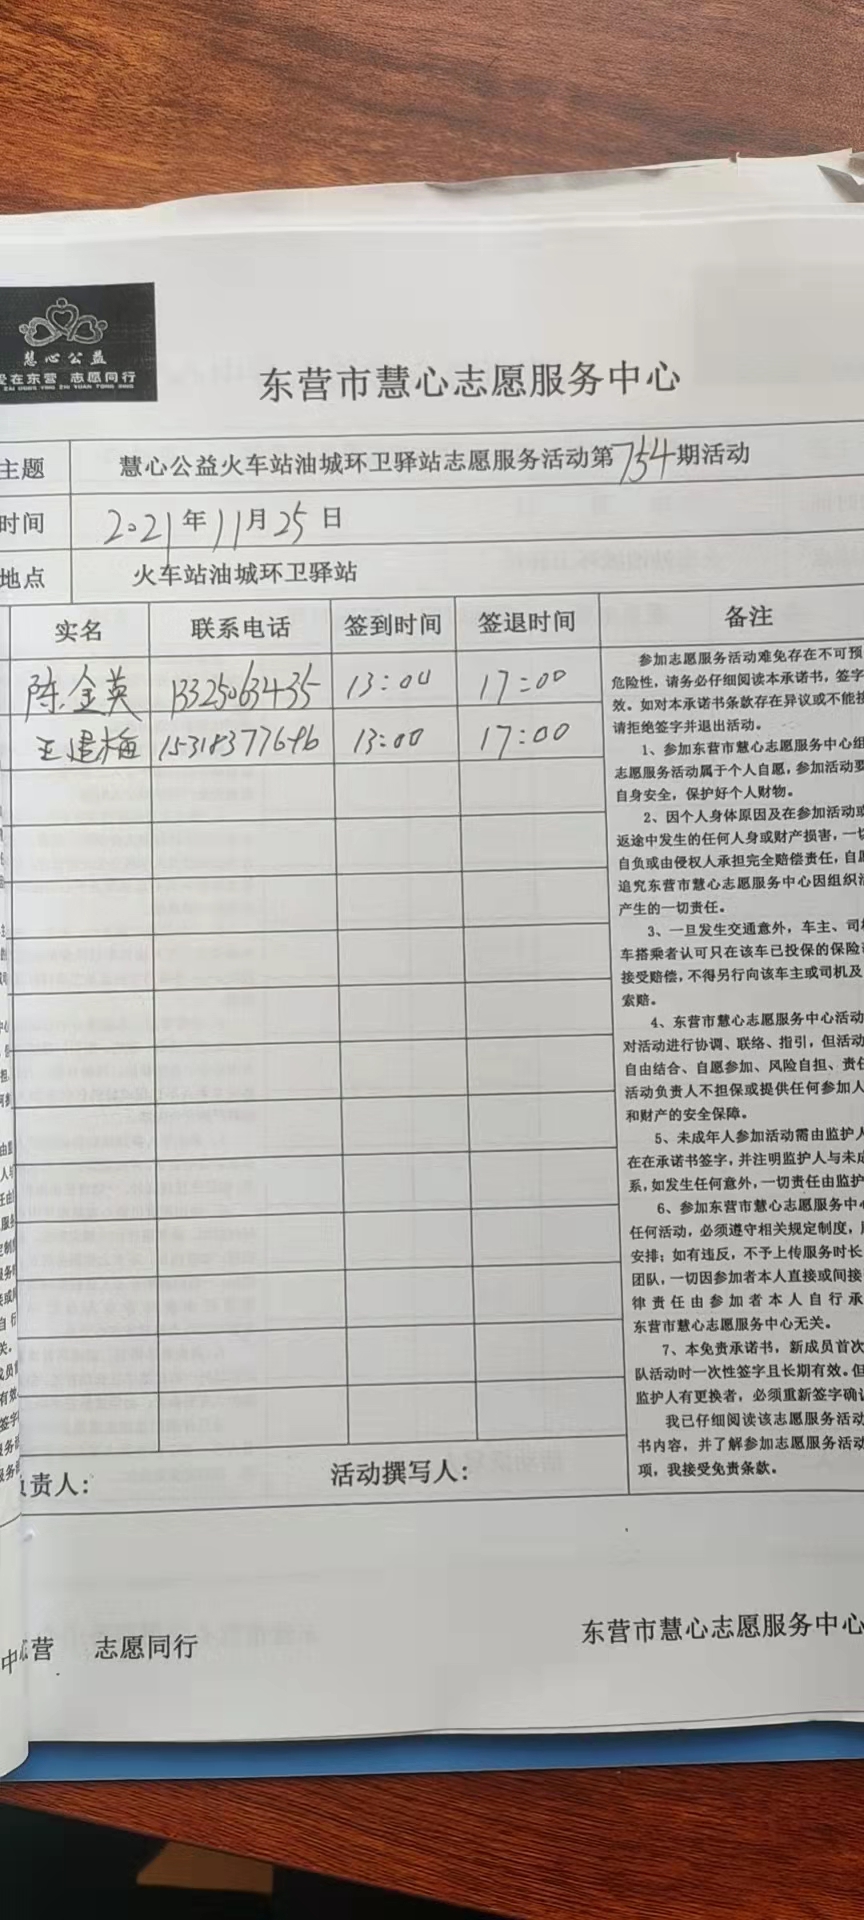 慧心公益
爱在东营 志愿同行
东营市慧心志愿服务中心
主题 慧心公益火车站油城环卫驿站志愿服务活动第754期活动
时间 2021年11月25日
地点 火车站油城环卫驿站
实名 联系电话 签到时间 签退时间 备注
陈金英 13325063435 13:00 17:00
王建梅 15318377696 13:00 17:00
参加志愿服务活动难免存在不可预
危险性，请务必仔细阅读本承诺书，签字
效。如对本承诺书条款存在异议或不能接
请拒绝签字并退出活动。
1、参加东营市慧心志愿服务中心组
志愿服务活动属于个人自愿，参加活动要
自身安全，保护好个人财物。
2、因个人身体原因及在参加活动或
返途中发生的任何人身或财产损害，一切
自负或由侵权人承担完全赔偿责任，自愿
追究东营市慧心志愿服务中心因组织活
产生的一切责任。
3、一旦发生交通意外，车主、司机
车搭乘者认可只在该车已投保的保险
接受赔偿，不得另行向该车主或司机及
索赔。
4、东营市慧心志愿服务中心活动
对活动进行协调、联络、指引，但活动
自由结合、自愿参加、风险自担、责任
活动负责人不担保或提供任何参加人
和财产的安全保障。
5、未成年人参加活动需由监护人
在在承诺书签字，并注明监护人与未成
系，如发生任何意外，一切责任由监护
6、参加东营市慧心志愿服务中心
任何活动，必须遵守相关规定制度，
安排；如有违反，不予上传服务时长
团队，一切因参加者本人直接或间接
律责任由参加者本人自行承
东营市慧心志愿服务中心无关。
7、本免责承诺书，新成员首次
队活动时一次性签字且长期有效。但
监护人有更换者，必须重新签字确认
我已仔细阅读该志愿服务活动
书内容，并了解参加志愿服务活动
项，我接受免责条款。
负责人： 活动撰写人：
东营 志愿同行 东营市慧心志愿服务中心